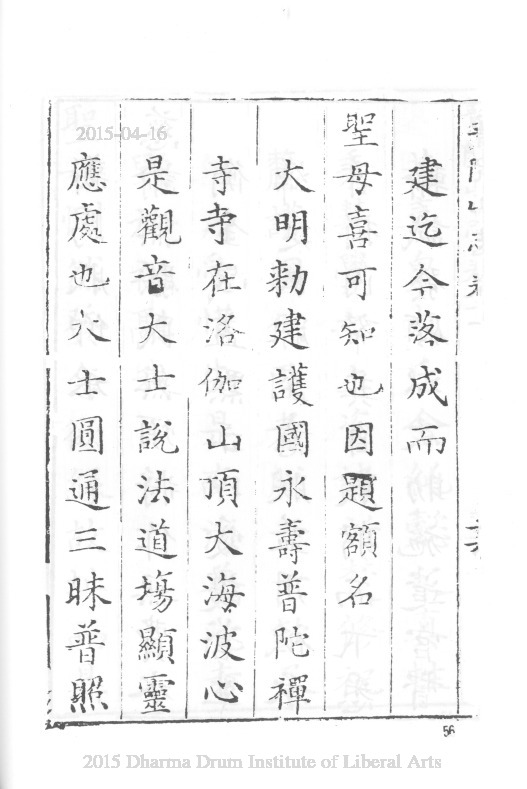 建迄今落成而
聖母喜可知也因題額名
大明勅建護國永壽普陀禪
寺寺在洛伽山頂大海波心
是觀音大士說法道場顯靈
應處也大士圓通三昧普照
56
2015-04-16
2015 Dharma Drum Institute of Liberal Arts